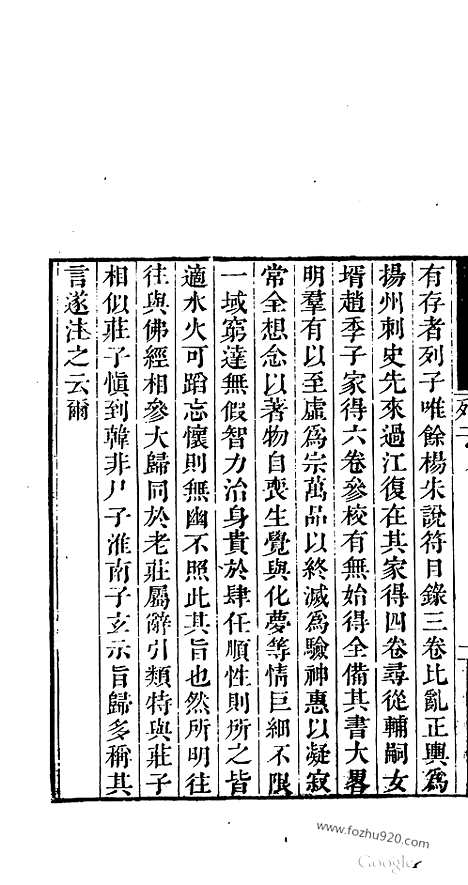 有存者列子唯餘楊朱說符目錄三卷比亂正輿爲
揚州刺史先來過江復在其家得四卷尋從輔嗣女
壻趙季子家得六卷參校有無始得全備其書大畧
明羣有以至虛爲宗萬品以終滅爲驗神惠以凝寂
常全想念以著物自喪生覺與化夢等情巨細不限
一域窮達無假智力治身貴於肆任順性則所之皆
適水火可蹈忘懷則無幽不照此其旨也然所明往
往與佛經相參大歸同於老莊屬辭引類特與莊子
相似莊子愼到韓非尸子淮南子玄示旨歸多稱其
言遂注之云爾
www.fozhu920.com
Google